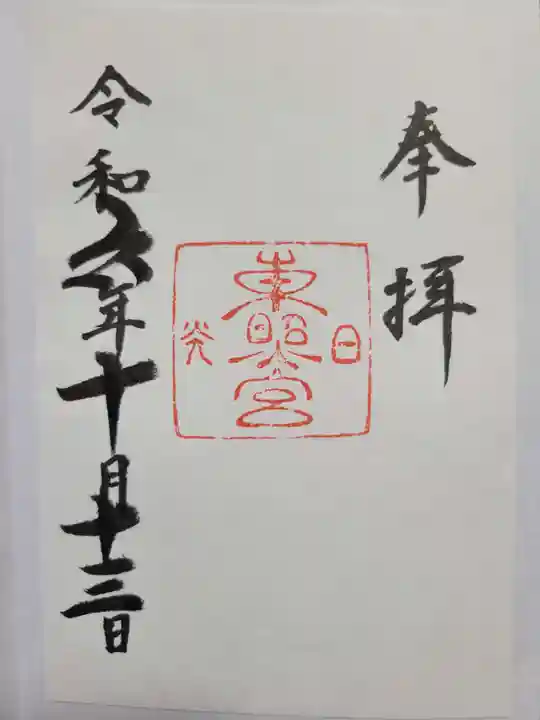 奉拝
日
東照宮
令和六年十月十三日